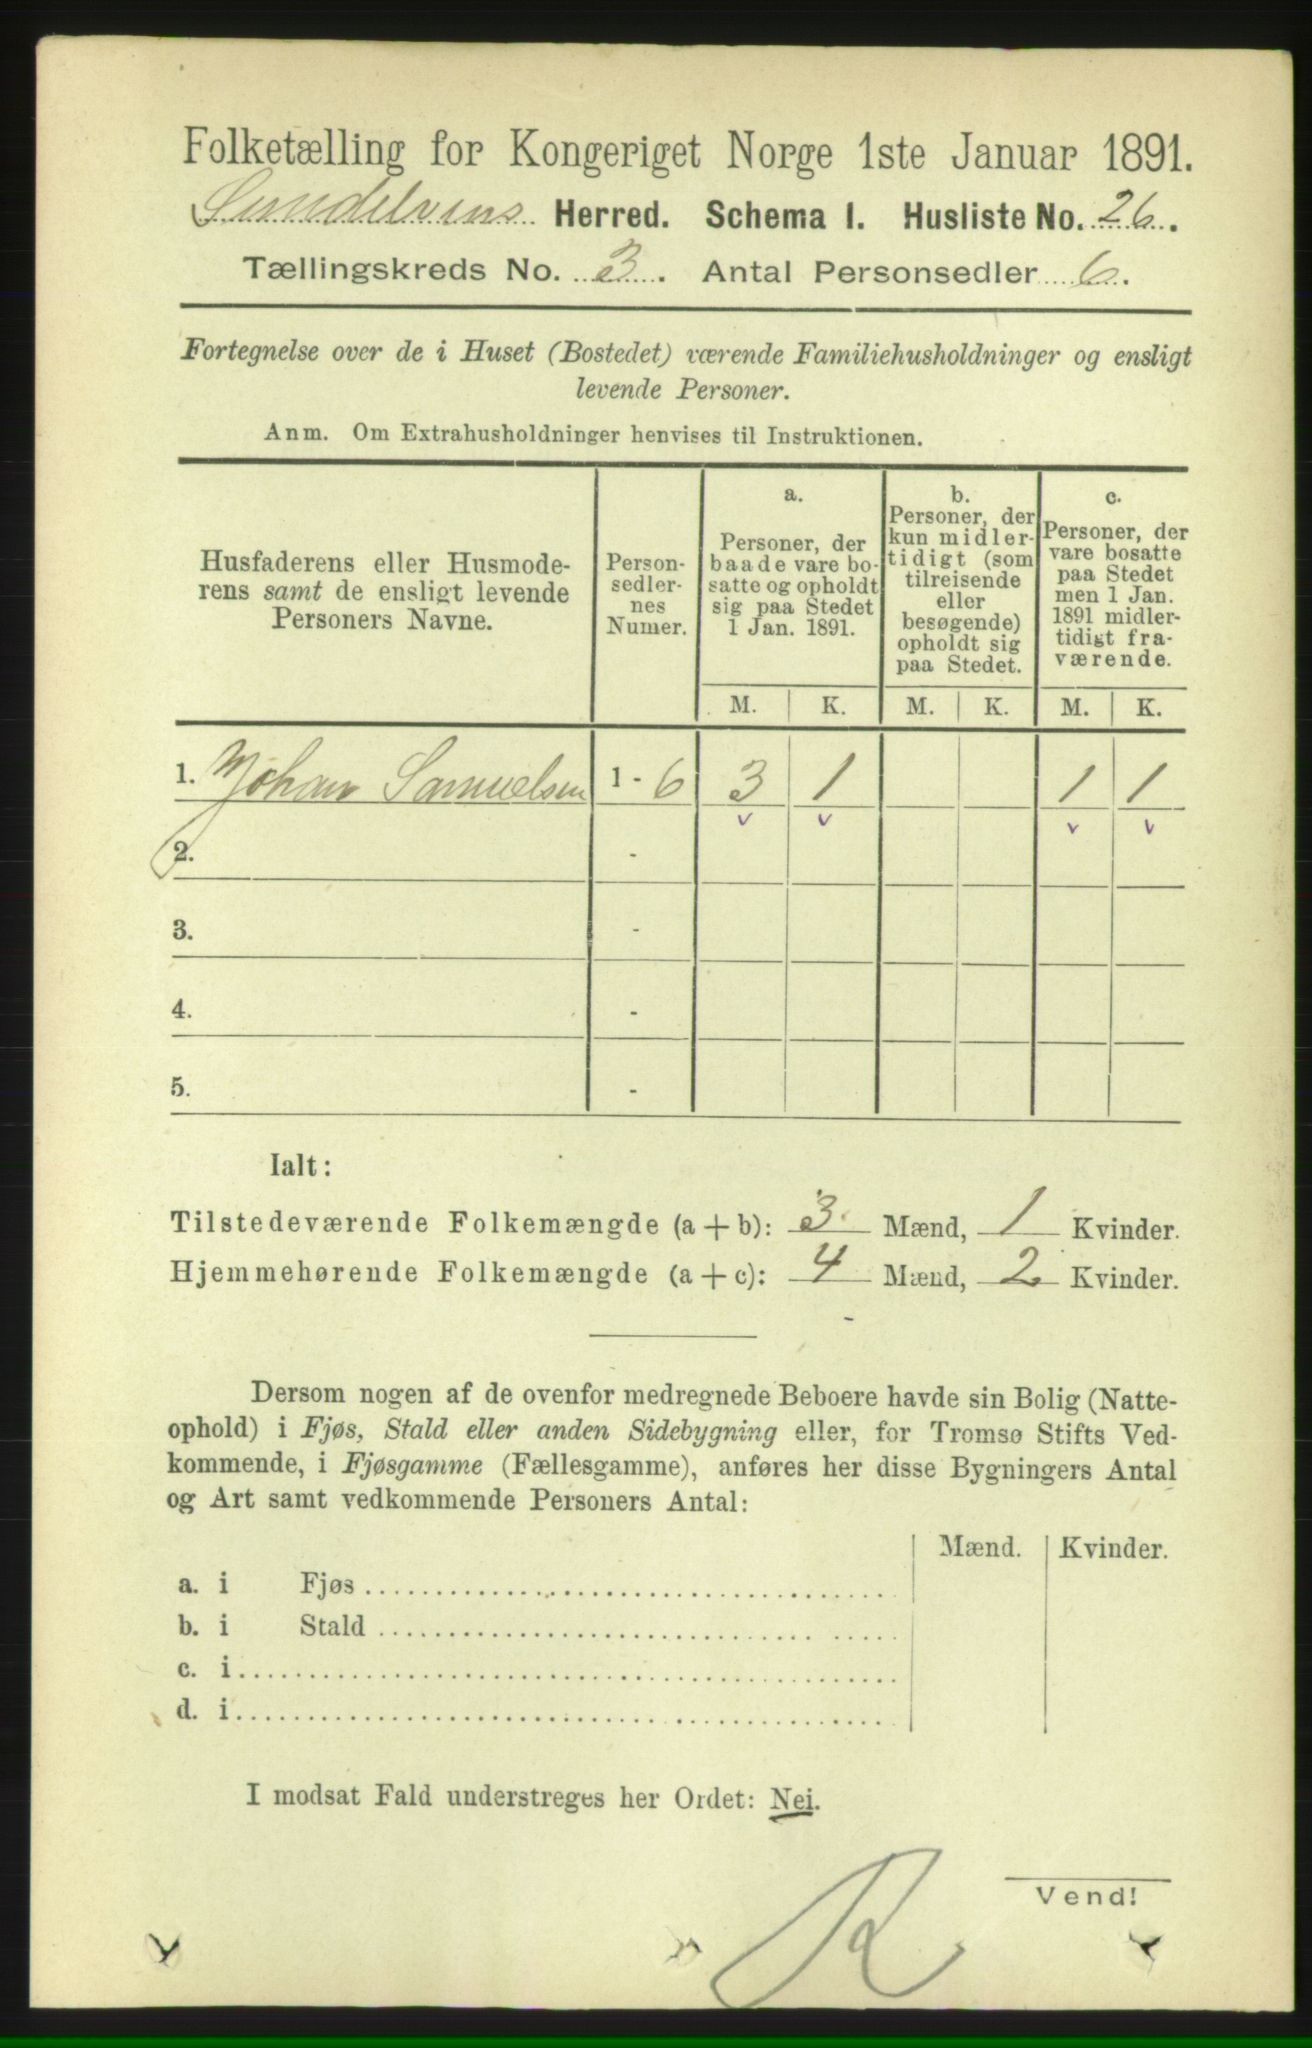 Folketælling for Kongeriget Norge 1ste Januar 1891.
Sundelvens Herred. Schema I. Husliste No. 26.
Tællingskreds No. 3. Antal Personsedler 6.
Fortegnelse over de i Huset (Bostedet) værende Familiehusholdninger og ensligt
levende Personer.
Anm. Om Extrahusholdninger henvises til Instruktionen.
Husfaderens eller Husmode-
rens samt de ensligt levende
Personers Navne.
Person-
sedler-
nes
Numer.
a.
Personer, der
baade vare bo-
satte og opholdt
sig paa Stedet
1 Jan. 1891.
b.
Personer, der
kun midler-
tidigt (som
tilreisende
eller
besøgende)
opholdt sig
paa Stedet.
c.
Personer, der
vare bosatte
paa Stedet
men 1 Jan.
1891 midler-
tidigt fra-
værende.
M. K. M. K. M. K.
1. Johan Samuelsen 1 - 6 3 1 1 1
2. -
3. -
4. -
5. -
Ialt:
Tilstedeværende Folkemængde (a + b): 3 Mænd, 1 Kvinder.
Hjemmehørende Folkemængde (a + c): 4 Mænd, 2 Kvinder.
Dersom nogen af de ovenfor medregnede Beboere havde sin Bolig (Natte-
ophold) i Fjøs, Stald eller anden Sidebygning eller, for Tromsø Stifts Ved-
kommende, i Fjøsgamme (Fællesgamme), anføres her disse Bygningers Antal
og Art samt vedkommende Personers Antal:
Mænd. Kvinder.
a. i Fjøs
b. i Stald
c. i
d. i
I modsat Fald understreges her Ordet: Nei.
R
Vend!